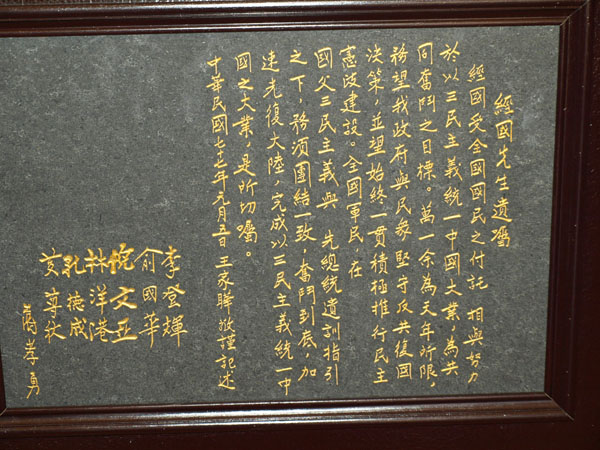 經國先生遺囑
經國受全國國民之付託 相與努力
於以三民主義統一中國大業，為共
同奮鬥之目標。萬一余為天年所限，
務望我政府與民眾堅守反共復國
決策，並望始終一貫積極推行民主
憲政建設。全國軍民，在
國父三民主義與 先總統遺訓指引
之下，務須團結一致，奮鬥到底，加
速光復大陸，完成以三民主義統一中
國之大業，是所切囑。
中華民國七十七年元月五日王家驊敬謹記述
李登輝
俞國華
倪文亞
林洋港
孔德成
黃尊秋
蔣孝勇